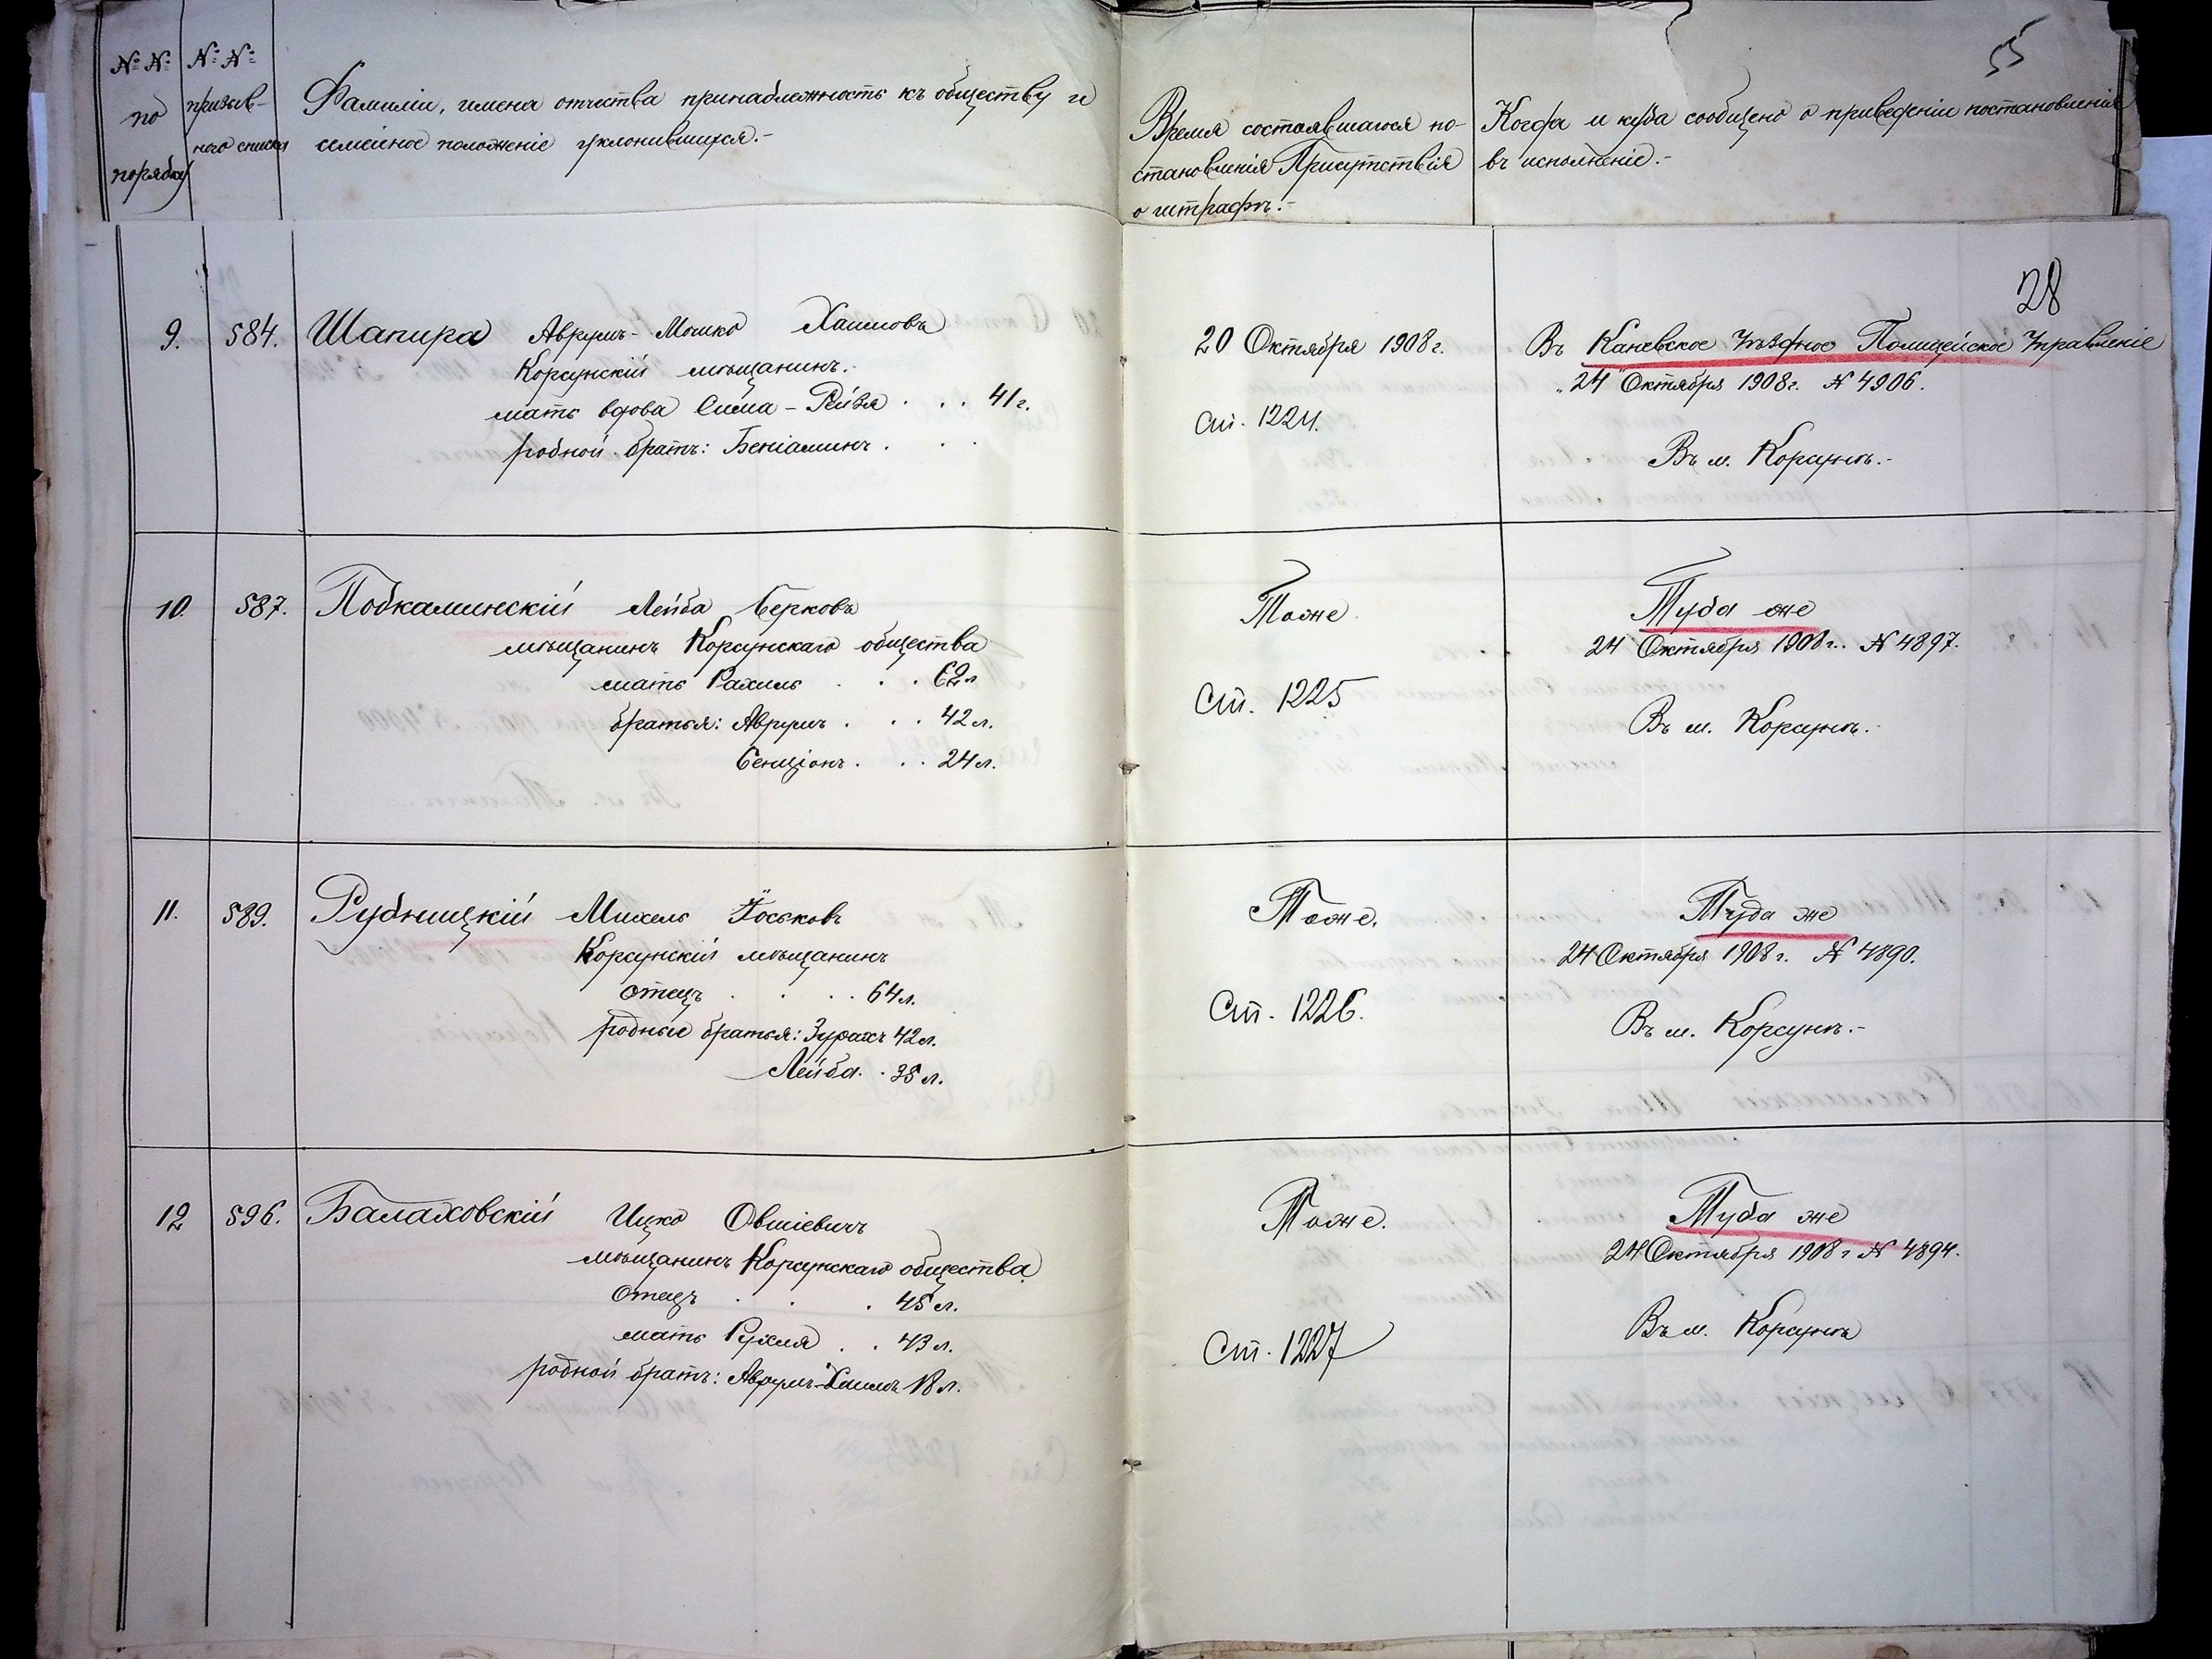 № № по порядку
№ № призыв-
наго списка
Фамилии, имена отчества принадлежность къ обществу и
семейное положеніе уклонившихся.-
Время состоявшагося по-
становленія Присутствія
о штрафѣ.-
Когда и куда сообщено о приведеніи постановленія
въ исполненіе.-
55
28
9. 584. Шапира Аврумъ-Мошко Хаимовъ
Корсунскій мѣщанинъ.-
мать вдова Сима-Рейзя . . . 41 г.
родной братъ: Беніаминъ . . .
20 Октября 1908 г.
Ст. 1224.
Въ Каневское Уѣздное Полицейское Управленіе
24 Октября 1908 г. № 4906.
Въ м. Корсунь.-
10. 587. Подкаминскій Лейба Берковъ
мѣщанинъ Корсунскаго общества
мать Рахиль . . . 62 л
братья: Аврумъ . . . 42 л.
Бенціонъ . . . 24 л.
Тоже
Ст. 1225
Туда же
24 Октября 1908 г. № 4897.
Въ м. Корсунь.-
11. 589. Рудницкій Михель Іоськовъ
Корсунскій мѣщанинъ
отецъ . . . . 64 л.
родные братья: Зурахъ 42 л.
Лейба . . 35 л.
Тоже.
Ст. 1226.
Туда же
24 Октября 1908 г. № 4890.
Въ м. Корсунь.-
12 596. Балаховскій Ицко Овшіевичъ
мѣщанинъ Корсунскаго общества
Отецъ . . . 45 л.
мать Рухля . . 43 л.
родной братъ: Аврумъ-Хаимъ 18 л.
Тоже.
Ст. 1227
Туда же
24 Октября 1908 г № 4894.
Въ м. Корсунь